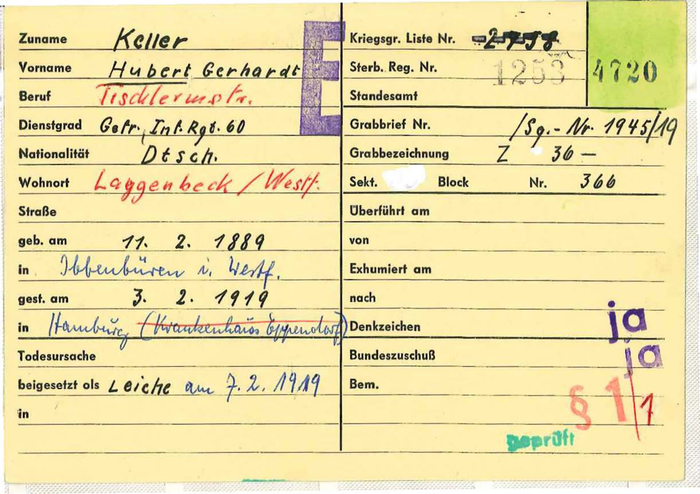 Zuname Keller
Vorname Hubert Gerhardt
Beruf Tischlermstr.
Dienstgrad Gefr., Inf. Rgt. 60
Nationalität Dtsch.
Wohnort Laggenbeck / Westf.
Straße
geb. am 11. 2. 1889
in Ibbenbüren i. Westf.
gest. am 3. 2. 1919
in Hamburg (Krankenhaus Eppendorf)
Todesursache
beigesetzt als Leiche am 7. 2. 1919
in
E
Kriegsgr. Liste Nr.
Sterb. Reg. Nr. 1253 4720
Standesamt
Grabbrief Nr. /Sg.-Nr. 1945/19
Grabbezeichnung Z 36 —
Sekt. Block Nr. 366
Überführt am
von
Exhumiert am
nach
Denkzeichen ja
Bundeszuschuß ja
Bem. § 1/1
geprüft